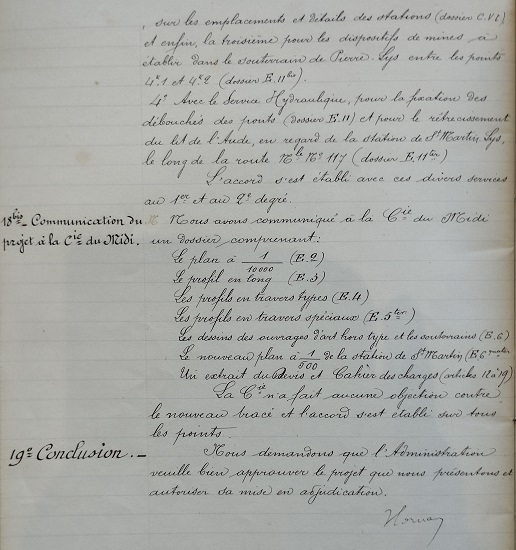 , sur les emplacements et détails des stations (dossier C.VI.)
et enfin, la troisième pour les dispositifs de mines à
établir dans le souterrain de Pierre-Lys entre les points
4K.1 et 4K2 (dossier E.11bis).
4° Avec le Service Hydraulique, pour la fixation des
débouchés des ponts (dossier E.11) et pour le rétrécissement
du lit de l'Aude, en regard de la station de St Martin Lys,
le long de la route Nle No 117 (dossier E.11ter)
L'accord s'est établi avec ces divers services
au 1er et au 2e degré.
18bis - Communication du
projet à la Cie du Midi.
Nous avons communiqué à la Cie du Midi
un dossier comprenant:
Le plan à 1/10000 (E.2)
Le profil en long (E.3)
Les profils en travers types (E.4)
Les profils en travers spéciaux (E.5ter)
Les dessins des ouvrages d'art hors type et les souterrains (E.6)
Le nouveau plan à 1/500 de la station de St Martin (E.6quater)
Un extrait du Devis et Cahier des charges (articles 12 à 19)
La Cie n'a fait aucune objection contre
le nouveau tracé et l'accord s'est établi sur tous
les points.
19e Conclusion. -
Nous demandons que l'Administration
veuille bien approuver le projet que nous présentons et
autoriser sa mise en adjudication.